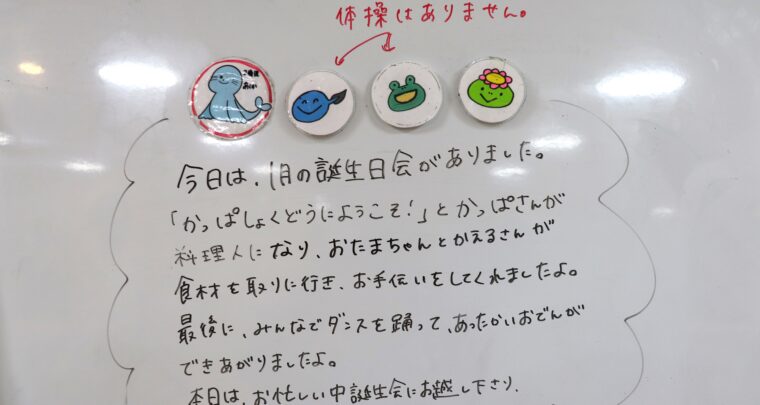 体操はありません。
今日は、1月の誕生日会がありました。
「かっぱしょくどうにようこそ!」とかっぱさんが
料理人になり、おたまちゃんとかえるさんが
食材を取りに行き、お手伝いをしてくれましたよ。
最後に、みんなでダンスを踊って、あったかいおでんが
できあがりましたよ。
本日は、お忙しい中誕生会にお越し下さり、